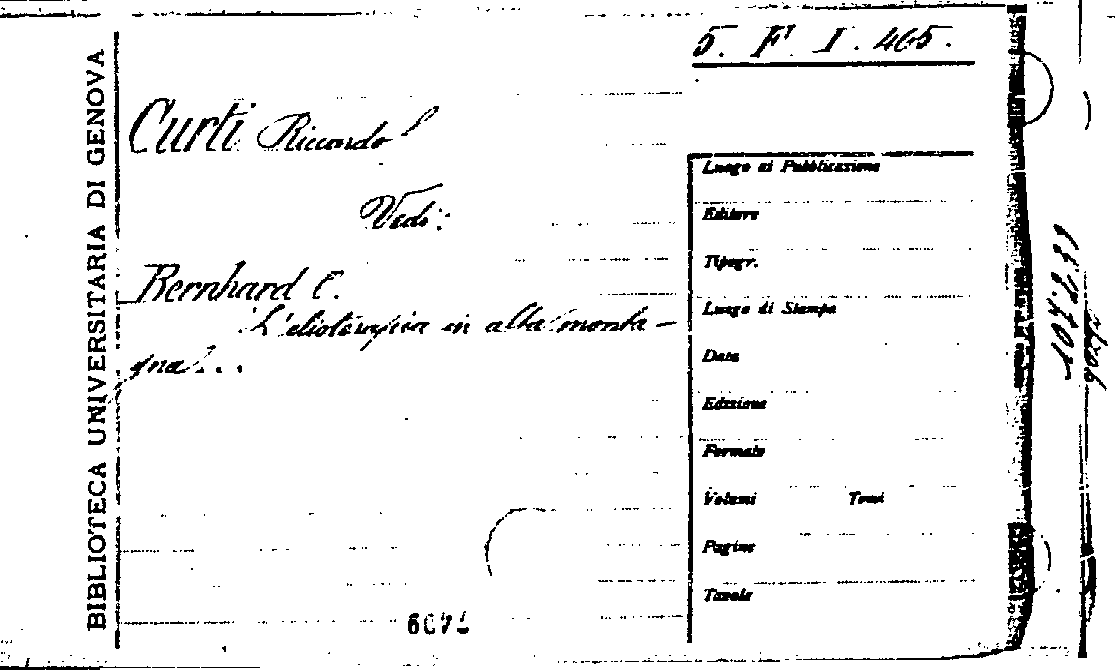 5. F. I. 465.
BIBLIOTECA UNIVERSITARIA DI GENOVA
Curti Riccardo
Vedi:
Bernhard C.
L'elioterapia in alta monta-
gna...
Luogo di Pubblicazione
Editore
Tipogr.
Luogo di Stampa
Data
Edizione
Formato
Volumi Tomi
Pagine
Tavole